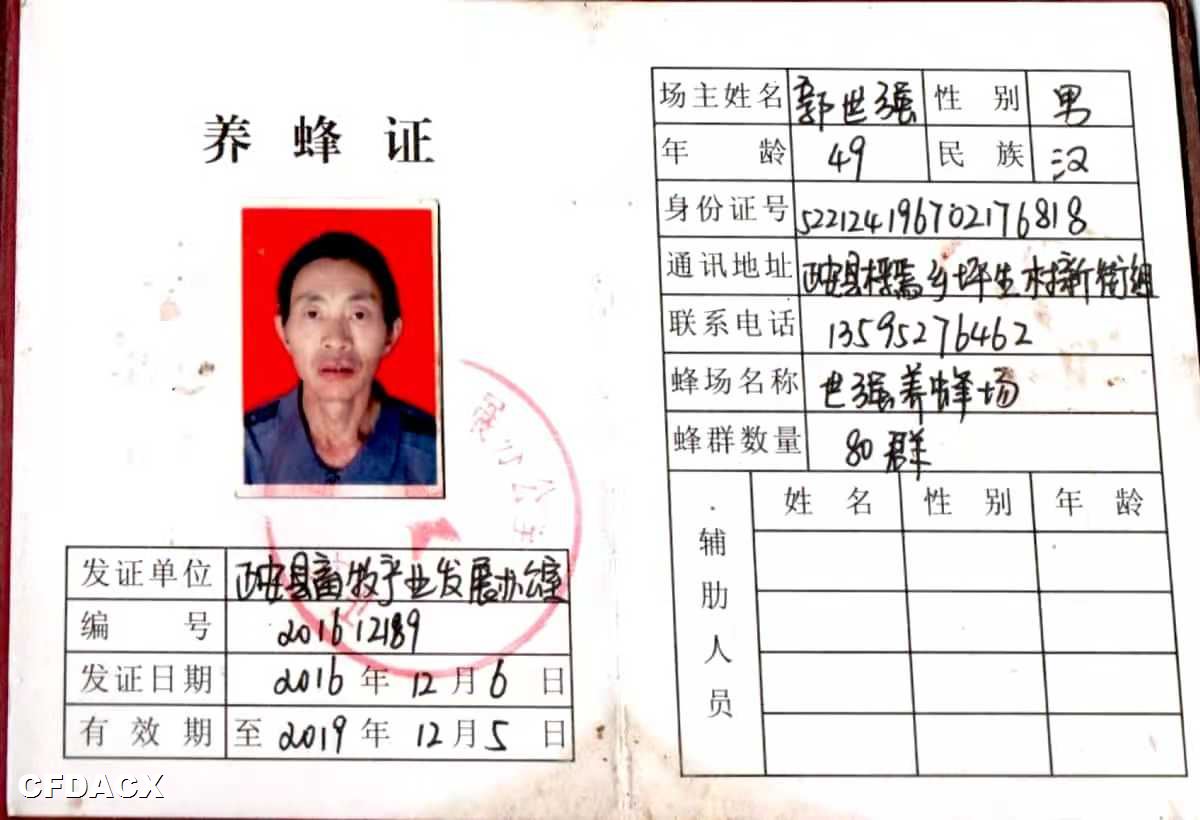 养蜂证
发证单位 正安县畜牧产业发展办公室
编号 201612189
发证日期 2016年12月6日
有效期 至2019年12月5日
场主姓名 郭世强 性别 男
年龄 49 民族 汉
身份证号 522124196702176818
通讯地址 正安县 乡坪生村新街组
联系电话 13595276462
蜂场名称 世强养蜂场
蜂群数量 80群
辅肋人员
姓名 性别 年龄
CFDACX